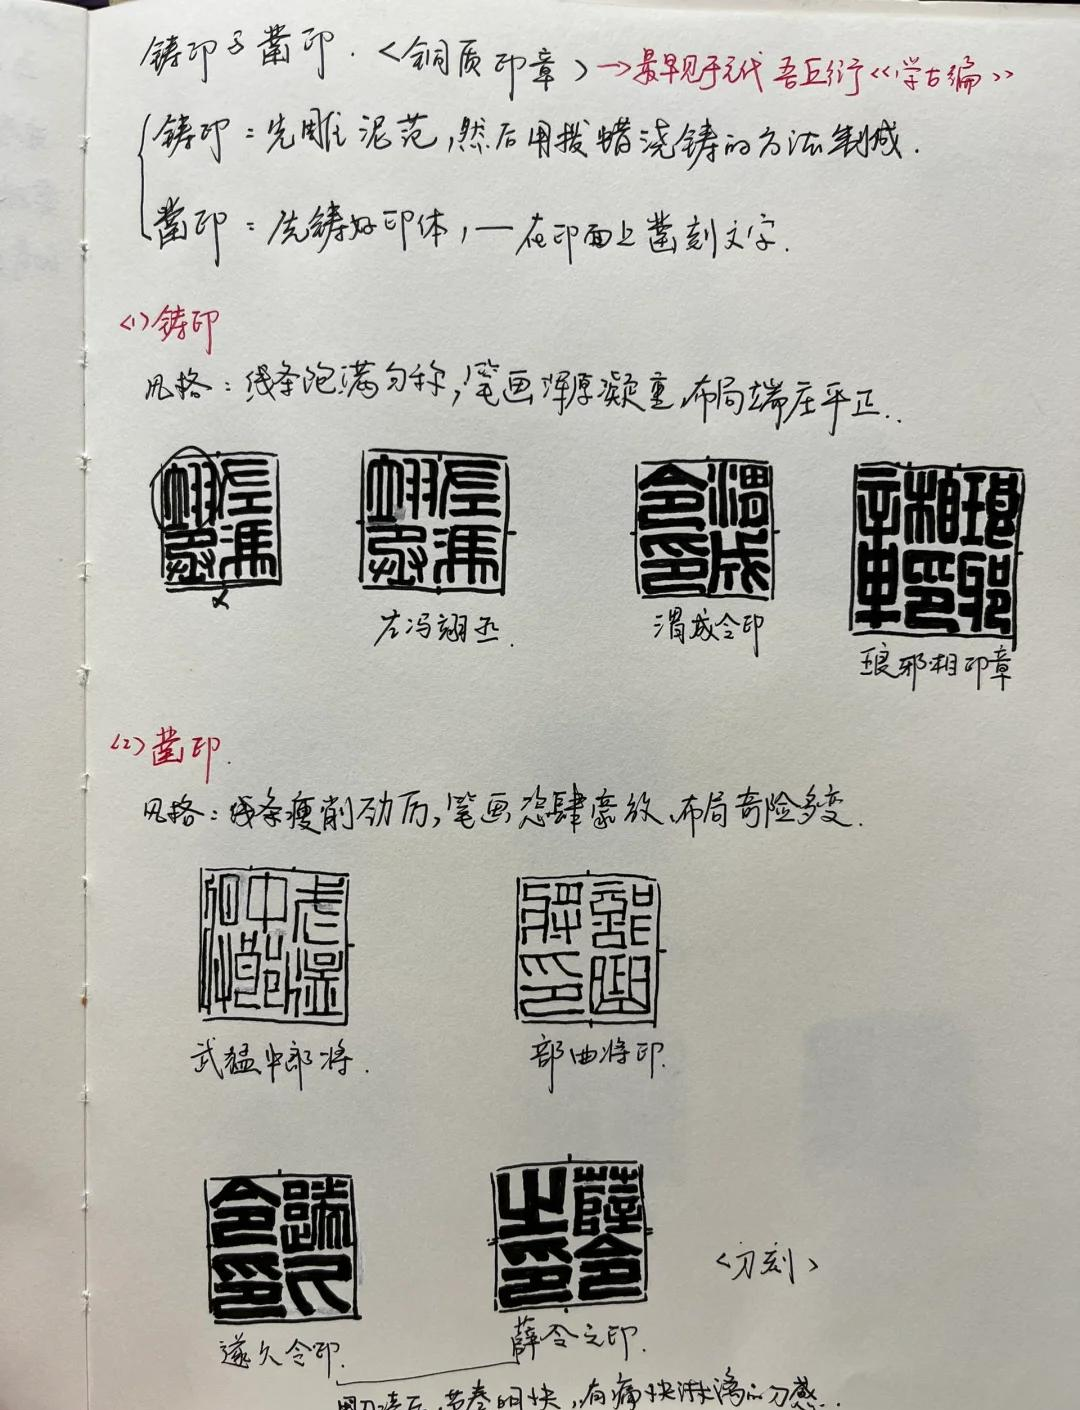 铸印与凿印.<铜质印章>→最早见于元代 吾丘衍《学古编》
铸印:先雕泥范,然后用拨蜡浇铸的方法制成.
凿印:先铸好印体,一在印面上凿刻文字.
<1>铸印
风格:线条饱满匀称,笔画浑厚凝重,布局端庄平正..
左冯翊丞.
渭城令印
琅邪相印章
<2>凿印.
风格:线条瘦削劲厉,笔画恣肆豪放,布局奇险多变.
武猛中郎将.
部曲将印.
<刀刻>
遂久令印.
薛令之印.
节奏明快,有痛快淋漓的刀感.